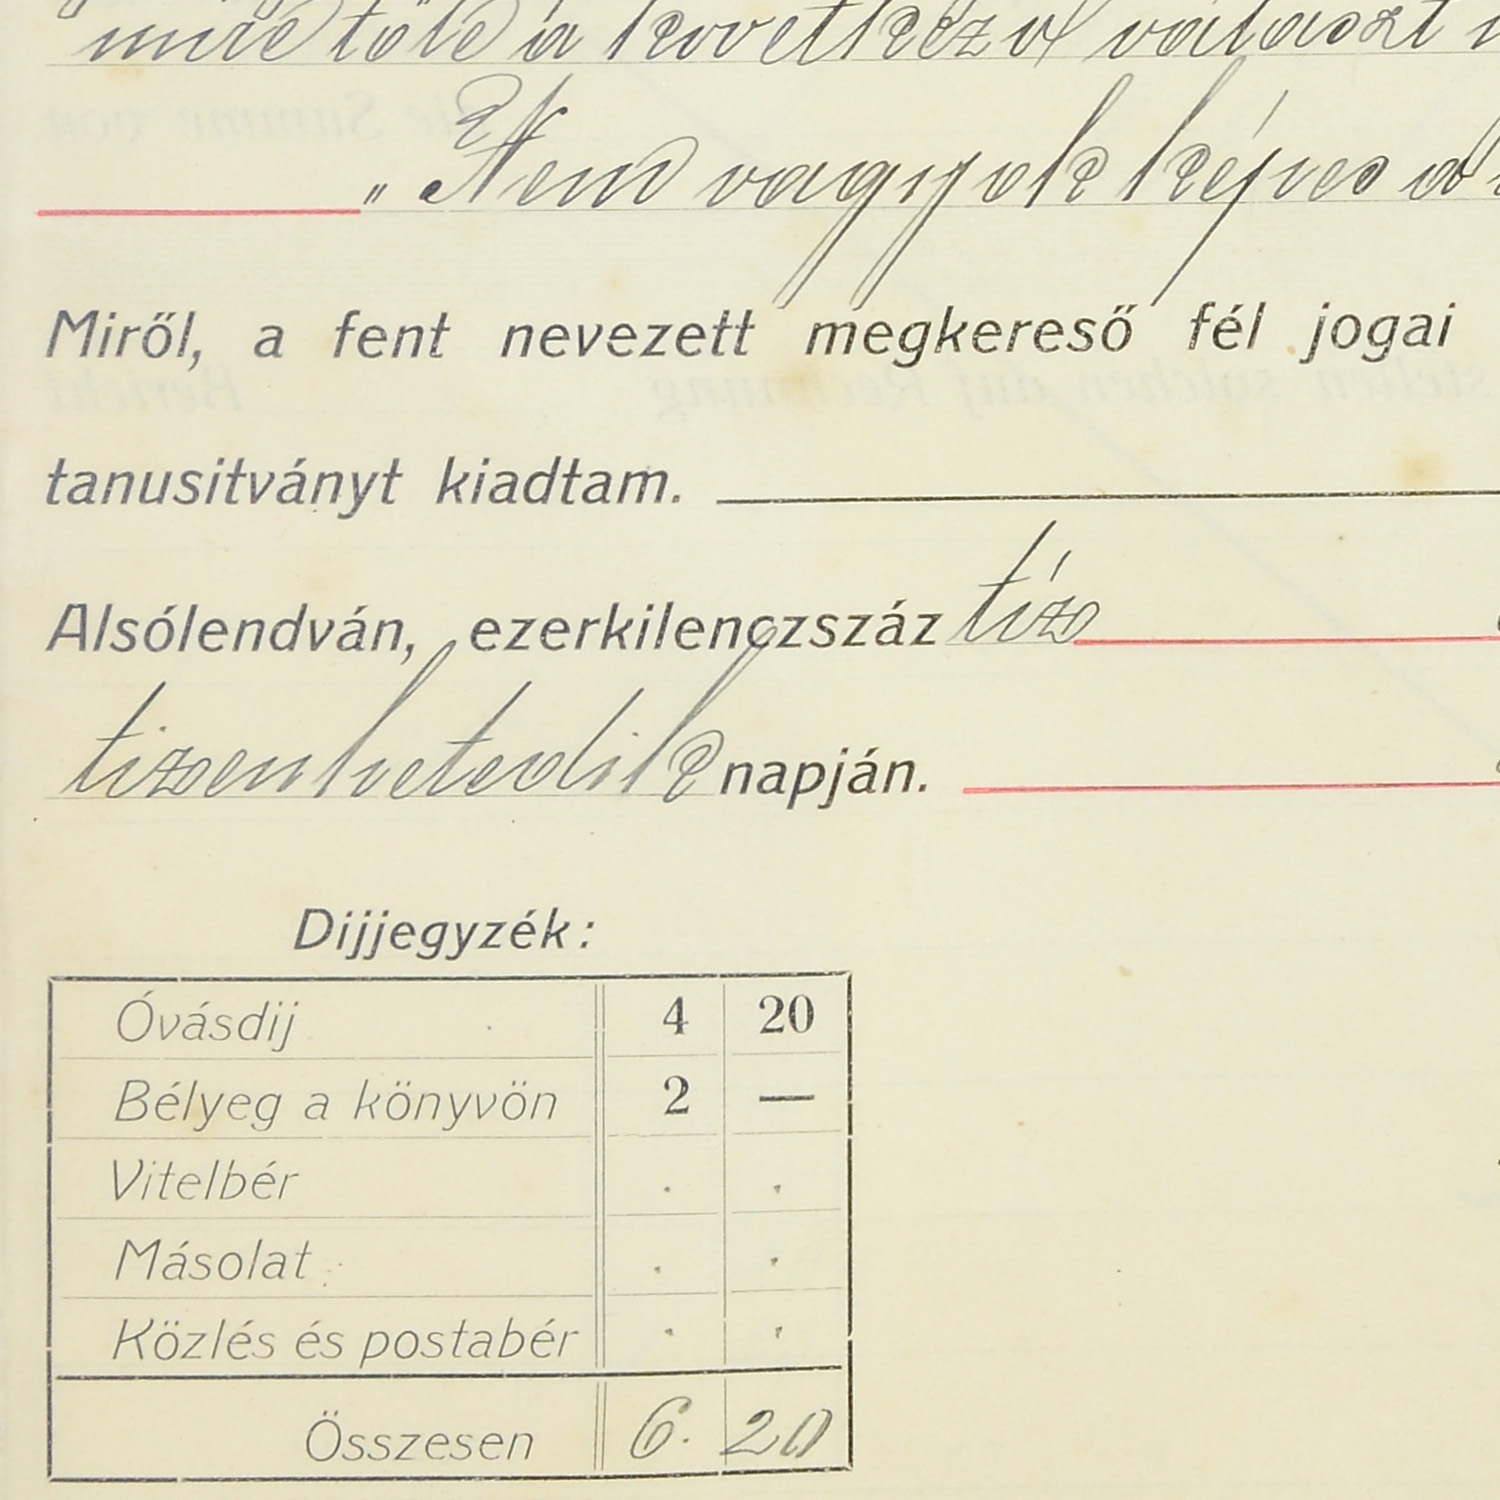 mire tőle a következő választ
„Nem vagyok képes
Miről, a fent nevezett megkereső fél jogai
tanusitványt kiadtam.
Alsólendván, ezerkilenczszáz tíz
tizenhetedik napján.
Dijjegyzék:
Óvásdij 4 20
Bélyeg a könyvön 2 —
Vitelbér . .
Másolat . .
Közlés és postabér . .
Összesen 6. 20